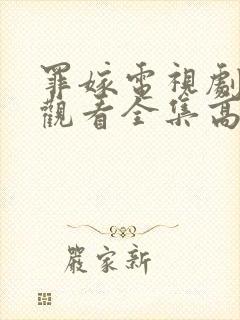 罪嫁電視劇
觀看全集高
嚴家新